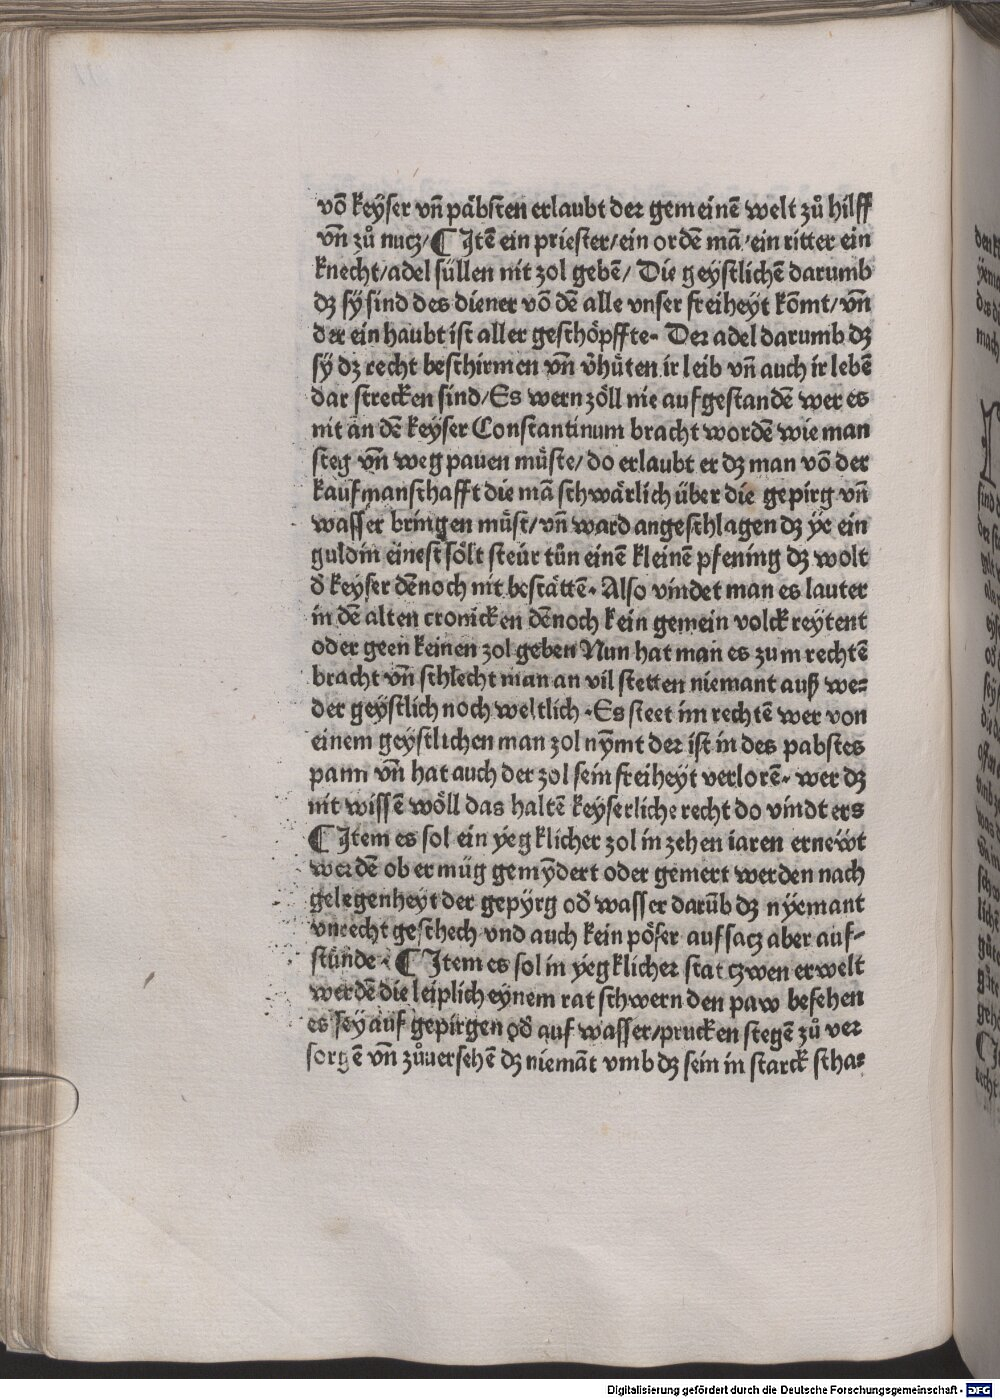 võ keÿser vñ päbsten erlaubt der gemeinẽ welt zů hilff
vñ zů nucz/ ¶ Itẽ ein priester/ein ordẽ mã/ein ritter ein
knecht/adel süllen nit zol gebẽ/ Die geÿstlichẽ darumb
dz sÿ sind des diener võ dẽ alle vnser freiheÿt kõmt/vñ
der ein haubt ist aller geschöpffte. Der adel darumb dz
sÿ dz recht beschirmen vñ v̉hüten ir leib vñ auch ir lebẽ
dar strecken sind/Es wern zöll nie aufgestandẽ wer es
nit an dẽ keÿser Constantinum bracht wordẽ wie man
steg vñ weg pauen müste/do erlaubt er dz man võ der
kaufmanschafft die mã schwärlich über die gepirg vñ
wasser bringen müst/vñ ward angeschlagen dz ÿe ein
guldin einest sölt steür tůn einẽ kleinẽ pfening dz wolt
đ keÿser dẽnoch nit bestättẽ. Also vindet man es lauter
in dẽ alten cronicken dẽnoch kein gemein volck reÿtent
oder geen keinen zol geben Nun hat man es zum rechtẽ
bracht vñ schlecht man an vil stetten niemant auß we⸗
der geÿstlich noch weltlich. Es steet im rechtẽ wer von
einem geÿstlichen man zol nÿmt der ist in des pabstes
pann vñ hat auch der zol sein freiheÿt verlorẽ. wer dz
nit wissẽ wöll das haltẽ keÿserliche recht do vindt ers
¶ Item es sol ein ÿegklicher zol in zehen iaren ernewt
werdẽ ob er müg gemÿndert oder gemert werden nach
gelegenheÿt der gepÿrg ođ wasser darũb dz nÿemant
vnrecht geschech vnd auch kein pöser aufsacz aber auf⸗
stünde. ¶ Item es sol in ÿegklicher stat czwen erwelt
werdẽ die leiplich eÿnem rat schwern den paw besehen
es seÿ auf gepirgen ođ auf wasser/prucken stegẽ zů ver
sorgẽ vñ zůuersehẽ dz niemãt vmb dz sein in starck scha⸗
Digitalisierung gefördert durch die Deutsche Forschungsgemeinschaft - DFG